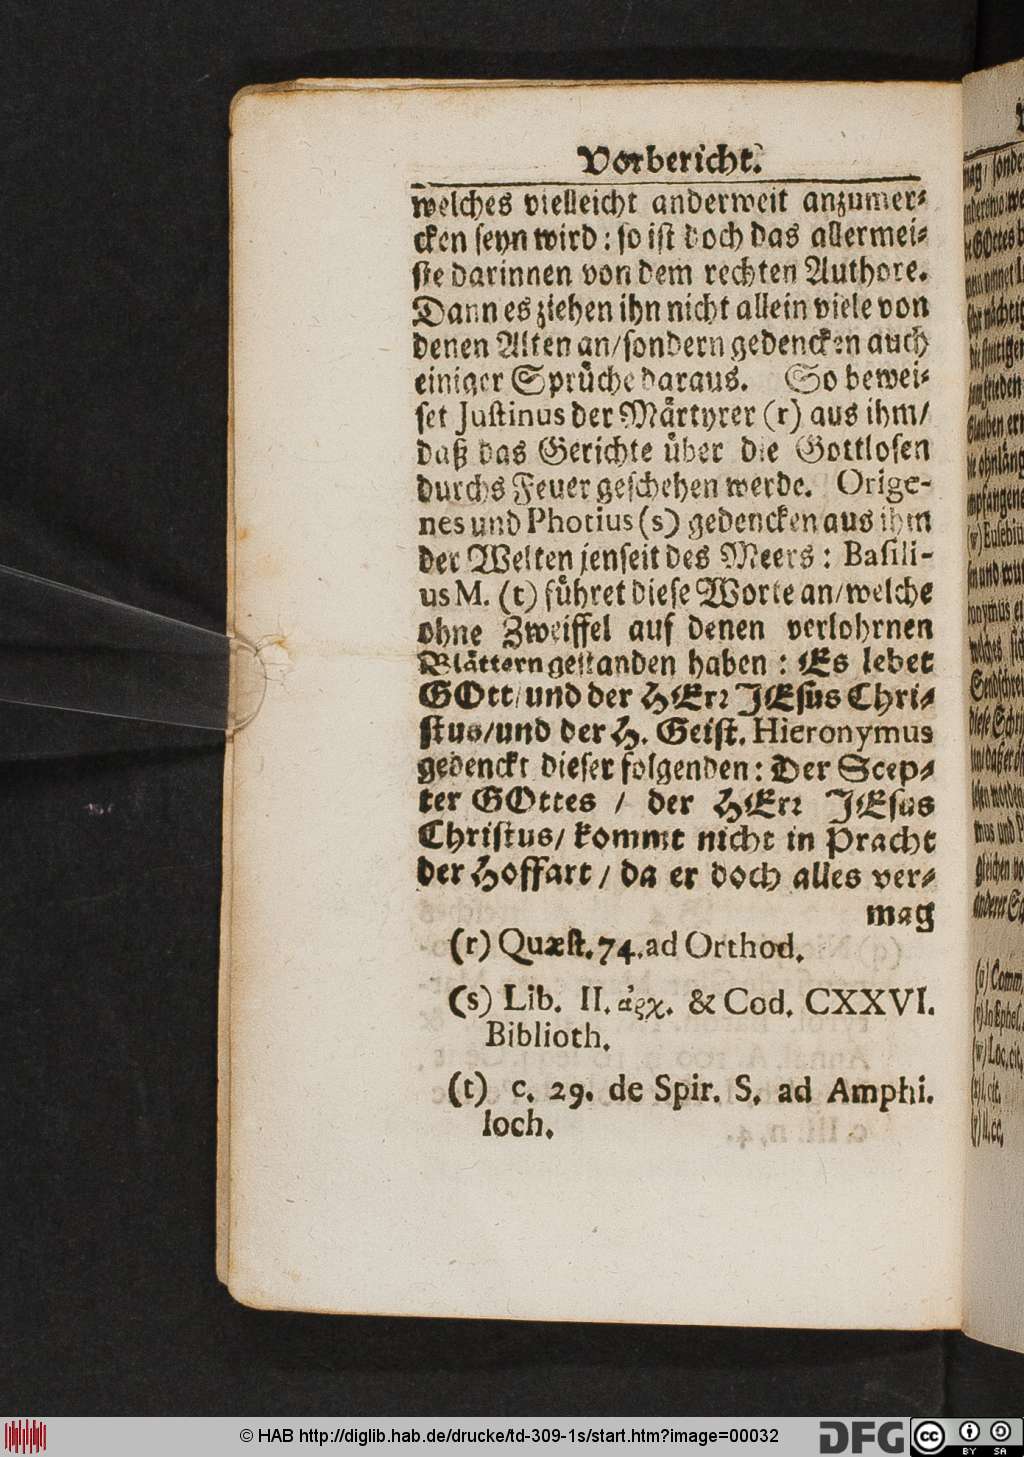 Vorbericht.
welches vielleicht anderweit anzumer⸗
cken seyn wird: so ist doch das allermei⸗
ste darinnen von dem rechten Authore.
Dann es ziehen ihn nicht allein viele von
denen Alten an/sondern gedencken auch
einiger Sprüche daraus. So bewei⸗
set Justinus der Märtyrer (r) aus ihm/
daß das Gerichte über die Gottlosen
durchs Feuer geschehen werde. Orige-
nes und Photius (s) gedencken aus ihm
der Welten jenseit des Meers: Basili-
us M. (t) führet diese Worte an/welche
ohne Zweiffel auf denen verlohrnen
Blättern gestanden haben: Es lebet
GOtt/und der HErr JEsus Chri⸗
stus/und der H. Geist. Hieronymus
gedenckt dieser folgenden: Der Scep⸗
ter GOttes / der HErr JEsus
Christus/ kommt nicht in Pracht
der Hoffart / da er doch alles ver⸗
mag
(r) Quæst. 74. ad Orthod.
(s) Lib. II. ἀρχ. & Cod. CXXVI.
Biblioth.
(t) c. 29. de Spir. S. ad Amphi.
loch.
© HAB http://diglib.hab.de/drucke/td-309-1s/start.htm?image=00032
DFG
cc BY SA